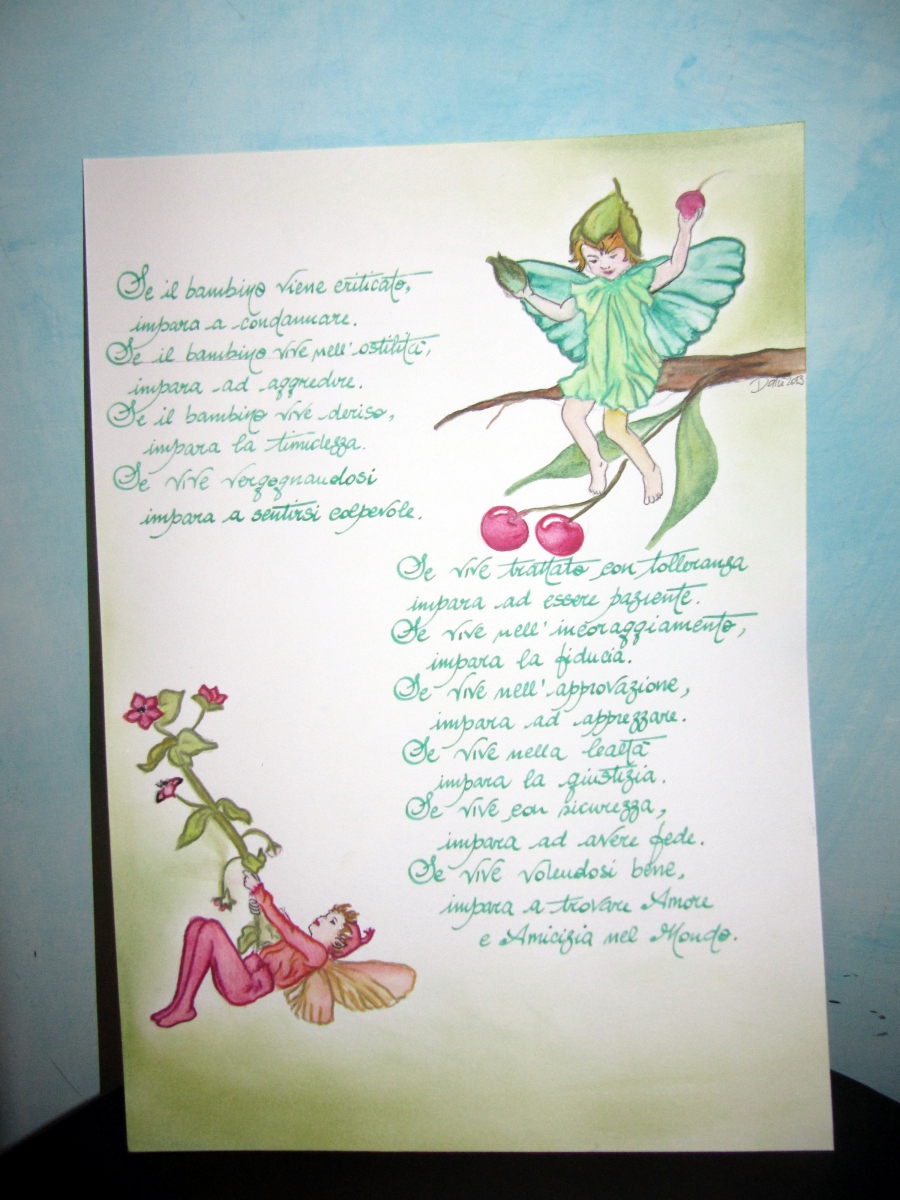 Se il bambino viene criticato,
impara a condannare.
Se il bambino vive nell'ostilità,
impara ad aggredire.
Se il bambino vive deriso,
impara la timidezza.
Se vive vergognandosi
impara a sentirsi colpevole.
Se vive trattato con tolleranza
impara ad essere paziente.
Se vive nell'incoraggiamento,
impara la fiducia.
Se vive nell'approvazione,
impara ad apprezzare.
Se vive nella lealtà
impara la giustizia.
Se vive con sicurezza,
impara ad avere fede.
Se vive volendosi bene,
impara a trovare Amore
e Amicizia nel Mondo.